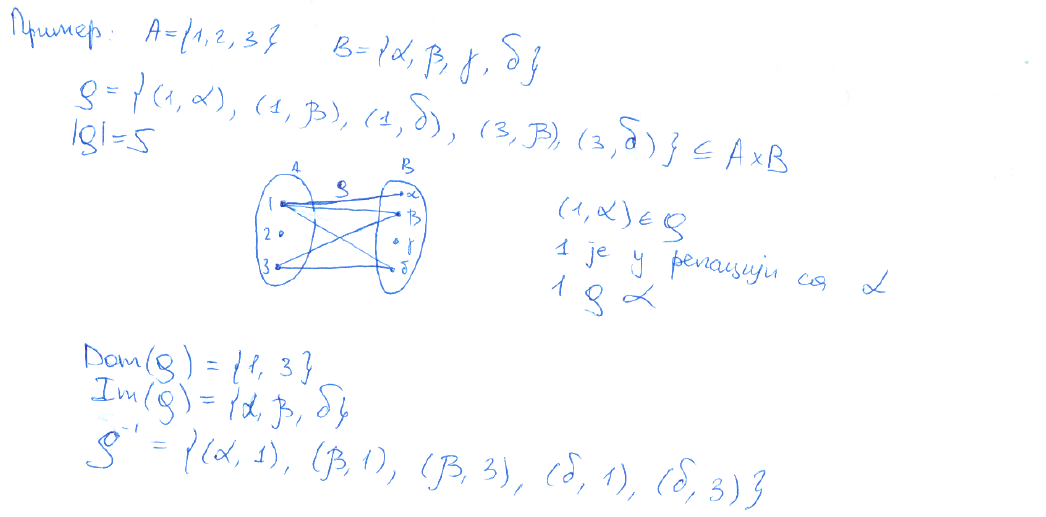 Пример: A={1,2,3} B={α, β, γ, δ}
ρ={(1,α), (1,β), (1,δ), (3,β), (3,δ)} ⊆ A×B
|ρ|=5
A ρ B
1 α
β
2 γ
3 δ
(1,α)∈ρ
1 је у релацији са α
1 ρ α
Dom(ρ) = {1, 3}
Im(ρ) = {α, β, δ}
ρ⁻¹ = {(α, 1), (β, 1), (β, 3), (δ, 1), (δ, 3)}